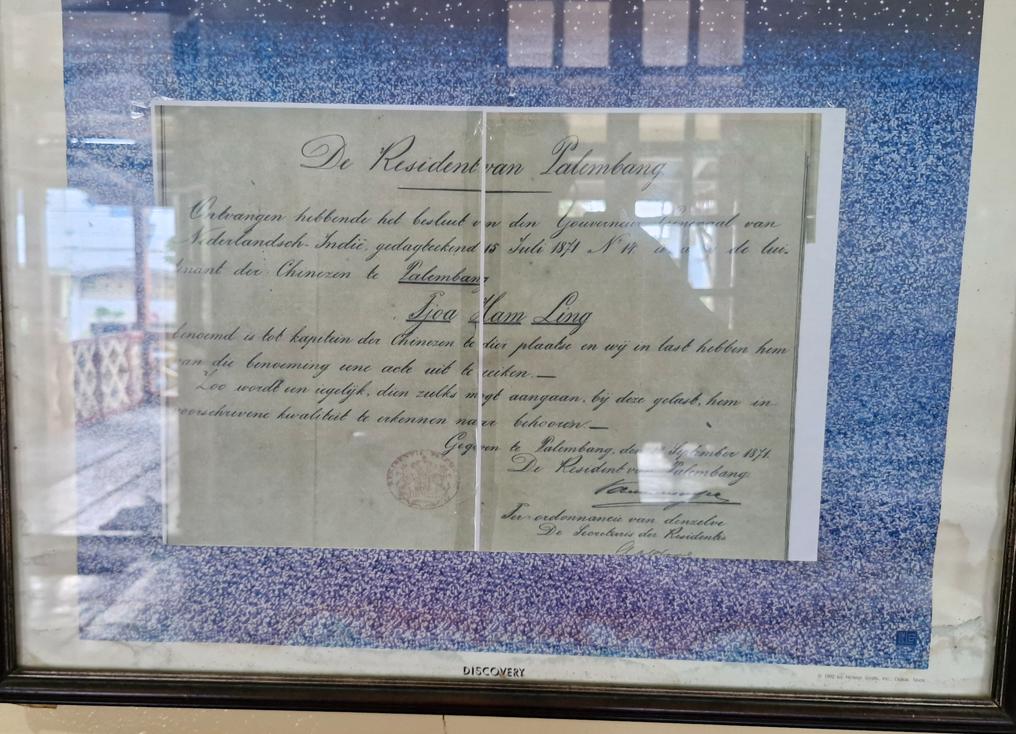 De Resident van Palembang
Ontvangen hebbende het besluit van den Gouverneur Generaal van
Nederlandsch-Indië, gedagteekend 15 Juli 1871 N 14 de lui-
tenant der Chinezen te Palembang
Tjoa Ham Ling
benoemd is tot kapitein der Chinezen te dier plaatse en wij in last hebben hem
van die benoeming eene acte uit te reiken.—
Zoo wordt een iegelijk, dien zulks mogt aangaan, bij deze gelast, hem in
voorschrevene kwaliteit te erkennen naar behooren.—
Gegeven te Palembang, den September 1871.
De Resident van Palembang
Ter ordonnancie van denzelve
De Secretaris der Residentie
DISCOVERY